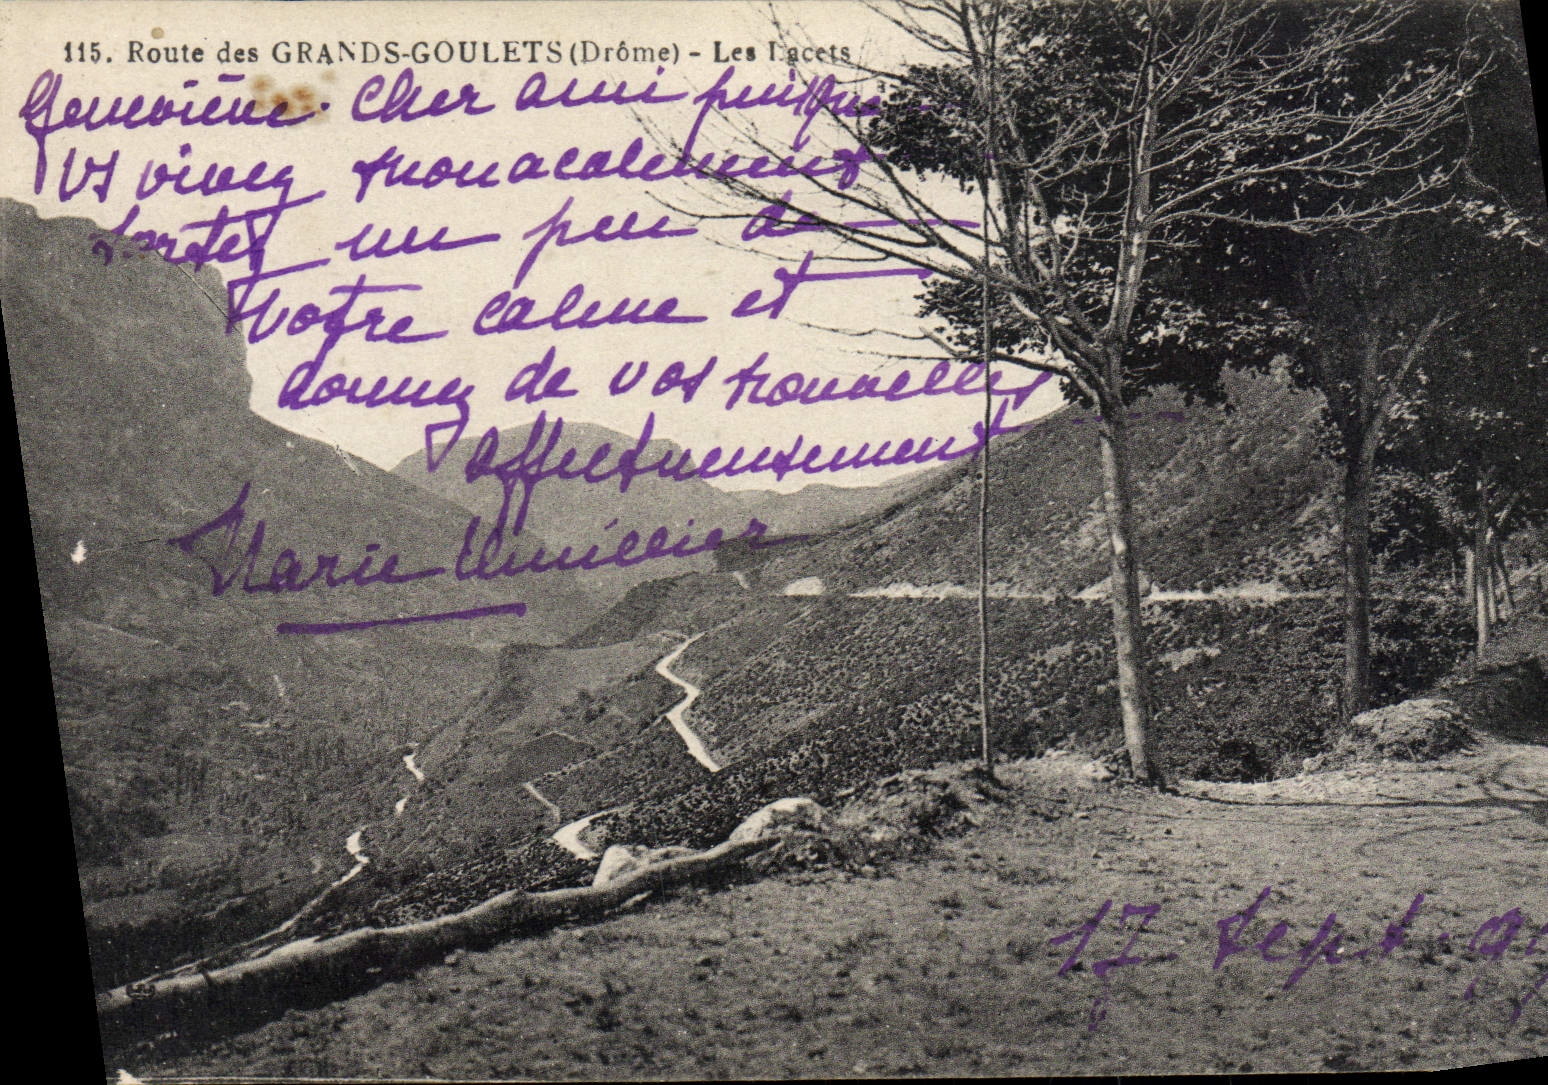 115. Route des GRANDS-GOULETS (Drôme) - Les Lacets
Geneviève. Cher ami puisque
vs vivez monacalement
sortez un peu de
votre calme et
donnez de vos nouvelles
affectueusement
Marie
17 Sept.